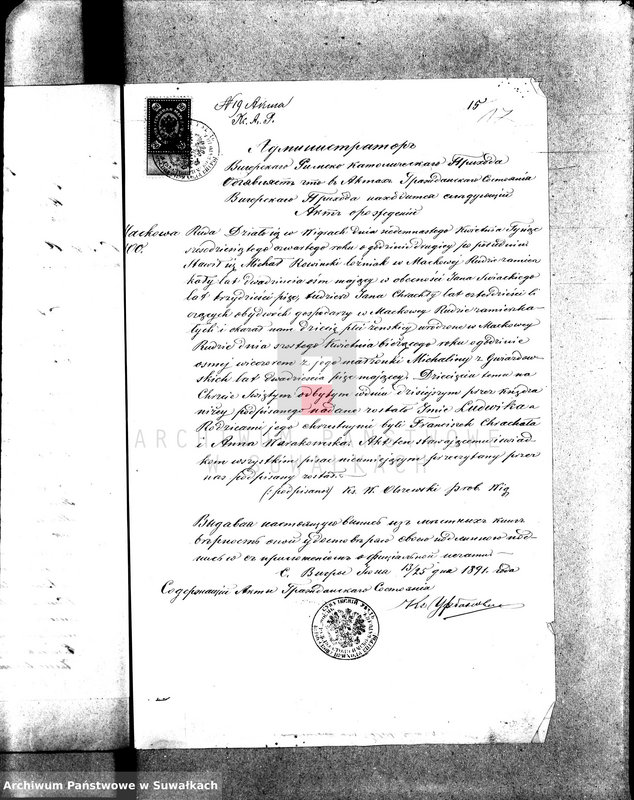 № 19 Акта
К. А. Г.
15
17
Администраторъ
Вигерскаго Римско Католическаго Прихода
Объявляетъ что въ Актахъ Гражданскаго Состоянія
Вигерскаго Прихода находится слѣдующій
Актъ о рожденіи
Mackowa Ruda. Działo się w Wigrach dnia siedemnastego Kwietnia Tysiąc
sześdziesiątego czwartego roku o godzinie drugiéj po południu
Stawił się Michał Rowinski leżniak w Mackowéj Rudzie zamiesz
kały lat dwadzieścia ośm mający w obecności Jana
lat trzydzieści pięć, tudzież Jana lat czterdzieści li
czących obydwóch gospodarzy w Mackowéj Rudzie zamieszka
łych i okazał nam dziecię płci żeńskiéj urodzone w Mackowéj
Rudzie dnia szóstego Kwietnia bieżącego roku o godzinie
ósméj wieczorem z jego małżonki Michaliny z
lat dwadzieścia pięć mającej. Dziecięciu temu na
Chrzcie Świętym odbytym w dniu dzisiejszym przez Księdza
niżéj podpisanego nadane zostało Imie Ludwika a
Rodzicami jego chrzestnymi byli Franciszek Chrachała
i Anna Warakomska. Akt ten stawającemu i świad
kom wszystkim pisać nieumiejącym przeczytany przez
nas podpisany został.
(podpisano) Ks. W. Olszewski prob. Wig
Выдавая настоящую выпись изъ мѣстныхъ книгъ
вѣрность оной удостовѣряю своею подлинною под-
писью съ приложеніемъ официальной печати
С. Вигры Іюня 13/25 дня 1891 года
Содержащій Акты Гражданскаго Состоянія
Кс.
ARCHIWUM PAŃSTWOWE
W SUWAŁKACH
Archiwum Państwowe w Suwałkach